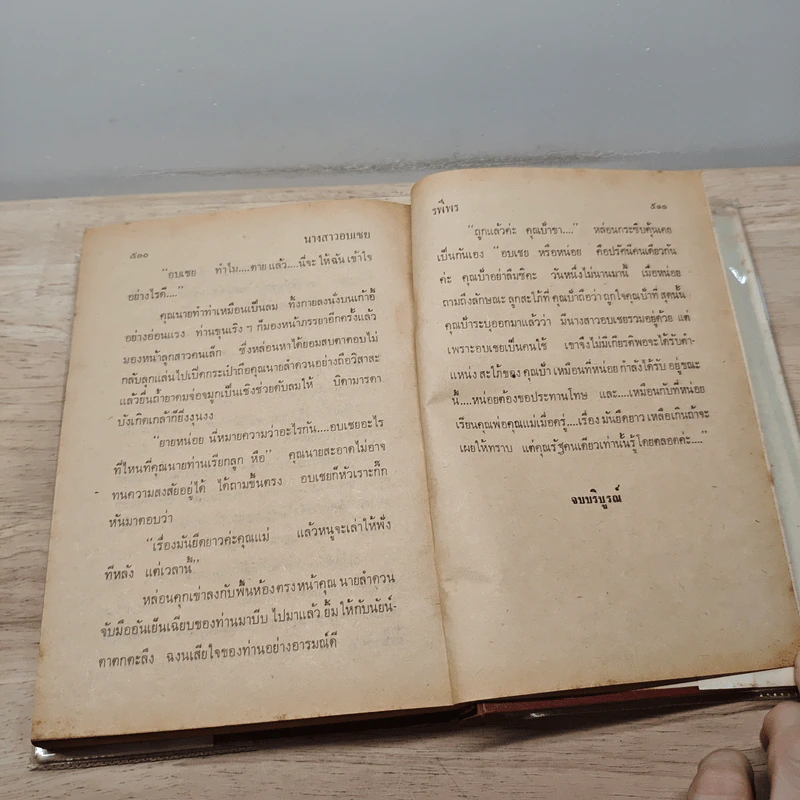 ๕๑๐ นางสาวอบเชย
“อบเชย ทำไม....ตาย แล้ว....นี่จะ ให้ฉัน เข้าใจ
อย่างไรดี....”
คุณนายทำท่าเหมือนเป็นลม ทิ้งกายลงนั่งบนเก้าอี้
อย่างอ่อนแรง ท่านขุนเริง ๆ ก็มองหน้าภรรยาอีกครั้งแล้ว
มองหน้าลูกสาวคนเล็ก ซึ่งหล่อนหาได้ยอมสบตาตอบไม่
กลับลุกแล่นไปเปิดกระเป๋าถือคุณนายลำดวนอย่างถือวิสาสะ
แล้วยื่นถ้ายาดมจ่อจมูกเป็นเชิงช่วยดับลมให้ บิดามารดา
บังเกิดเกล้าก็ยิ่งงุนงง
“ยายหน่อย นี่หมายความว่าอะไรกัน....อบเชยอะไร
ที่ไหนที่คุณนายท่านเรียกลูก หือ” คุณนายสะอาดไม่อาจ
ทนความสงสัยอยู่ได้ ได้ถามขึ้นตรง อบเชยก็หัวเราะกิ๊ก
หันมาตอบว่า
“เรื่องมันยืดยาวค่ะคุณแม่ แล้วหนูจะเล่าให้ฟัง
ทีหลัง แต่เวลานี้”
หล่อนคุกเข่าลงกับพื้นห้องตรงหน้าคุณ นายลำดวน
จับมืออันเย็นเฉียบของท่านมาบีบ ไปมาแล้ว ยิ้ม ให้กับนัยน์-
ตาตกตะลึง ฉงนเสียใจของท่านอย่างอารมณ์ดี
รพีพร ๕๑๑
“ถูกแล้วค่ะ คุณป้าขา....” หล่อนกระซิบคุ้นเคย
เป็นกันเอง “อบเชย หรือหน่อย คือปรัศนีคนเดียวกัน
ค่ะ คุณป้าอย่าลืมซิคะ วันหนึ่งไม่นานมานี้ เมื่อหน่อย
ถามถึงลักษณะ ลูกสะใภ้ที่ คุณป้าถือว่า ถูกใจคุณป้าที่ สุดนั้น
คุณป้าระบุออกมาแล้วว่า มีนางสาวอบเชยรวมอยู่ด้วย แต่
เพราะอบเชยเป็นคนใช้ เขาจึงไม่มีเกียรติพอจะได้รับตำ-
แหน่ง สะใภ้ของ คุณป้า เหมือนที่หน่อย กำลังได้รับ อยู่ขณะ
นี้....หน่อยต้องขอประทานโทษ และ....เหมือนกับที่หน่อย
เรียนคุณพ่อคุณแม่เมื่อครู่....เรื่อง มันยืดยาว เหลือเกินถ้าจะ
เผยให้ทราบ แต่คุณรัฐคนเดียวเท่านั้นรู้ โดยตลอดค่ะ....”
จบบริบูรณ์